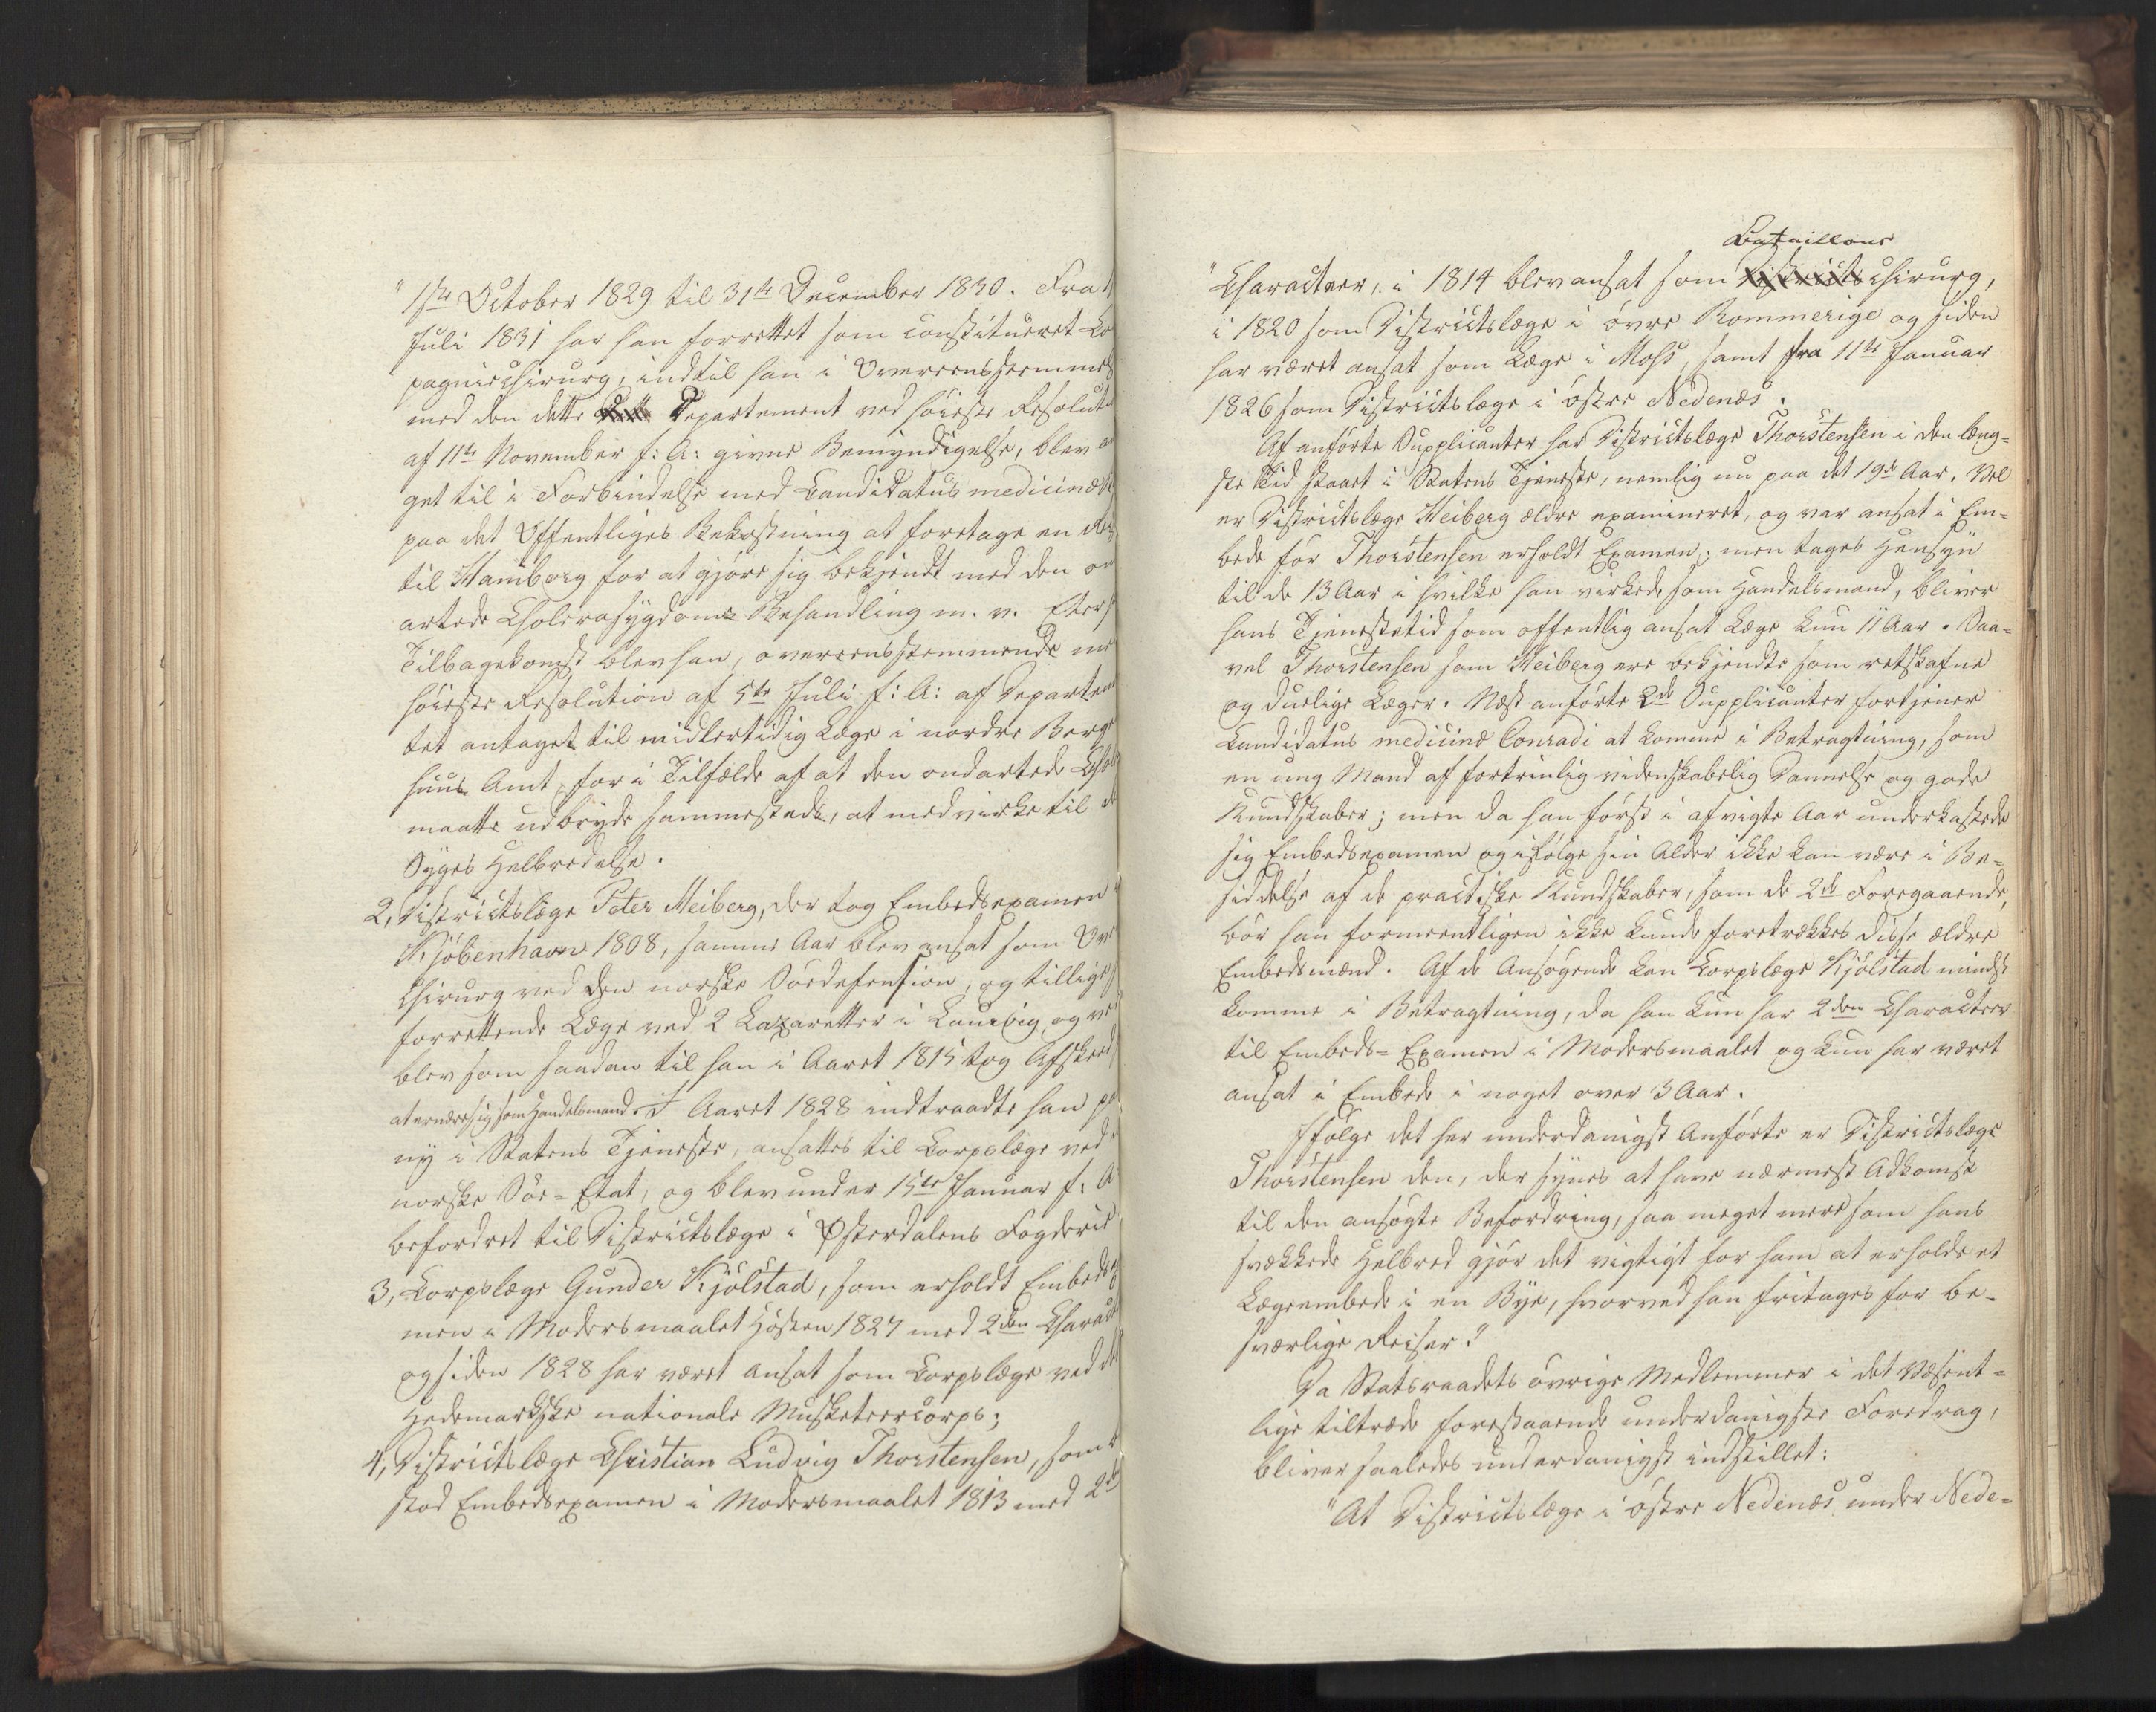 "1ste October 1829 til 31te December 1830. Fra
Juli 1831 har han forrettet som constitueret Co
pagniechirurg, indtil han i Overeensstemmel
med den dette Departement ved høieste Resoluti
af 11te November f: A: givne Bemyndigelse, blev
get til i Forbindelse med Candidatus medicinæ
paa det Offentliges Bekostning at foretage en
til Hamborg for at gjøre sig bekjendt med den on
artede Cholerasygdoms Behandling m. v. Efter
Tilbagekomst blev han, overeensstemmende me
høieste Resolution af 5te Juli f: A: af Departem
tet antaget til midlertidig Læge i nordre Berge
huus Amt, for i Tilfælde af at den ondartede Chol
maatte udbryde sammesteds, at medvirke til
Syges Helbredelse.
2, Districtslæge Peter Heiberg, der tog Embedsexamen
Kjöbenhavn 1808, samme Aar blev ansat som Ove
Chirurg ved den norske Södefension, og tillige
forrettende Læge ved 2 Lazaretter i Laurvig, og ve
blev som saadan til han i Aaret 1815 tog Afskeed
at ernære sig som Handelsmand. I Aaret 1828 indtraadte han pa
ny i Statens Tjeneste, ansattes til Corpslæge ved
norske Söe-Etat, og blev under 15de Januar f: A
befordret til Districtslæge i Østerdalens Fogderie
3, Corpslæge Gunder Kjölstad, som erholdt Embedsex
men i Modersmaalet Hösten 1827 med 2den Charact
og siden 1828 har været ansat som Corpslæge ved det
Hedemarkske nationale Musketeercorps;
4, Districtslæge Christian Ludvig Thorstensen, som
stod Embedsexamen i Modersmaalet 1813 med 2de
Bataillons
"Characteer, i 1814 blev ansat som Districtschirurg,
i 1820 som Districtslæge i övre Rommerige og siden
har været ansat som Læge i Moss, samt fra 11te Januar
1826 som Districtslæge i östre Nedenæs.
Af anförte Supplicanter har Districtslæge Thorstensen i den læng-
ste Tid staaet i Statens Tjeneste, nemlig nu paa det 19de Aar. Vel
er Districtslæge Heiberg ældre examineret, og var ansat i Em-
bede för Thorstensen erholdt Examen; men tages Hensyn
til de 13 Aar i hvilke han virkede som Handelsmand, bliver
hans Tjenestetid som offentlig ansat Læge kun 11 Aar. Saa-
vel Thorstensen som Heiberg ere bekjendte som retskafne
og duelige Læger. Næst anförte 2de Supplicanter fortjener
Candidatus medicinæ Conradi at komme i Betragtning, som
en ung Mand af fortrinlig videnskabelig Dannelse og gode
Kundskaber; men da han först i afvigte Aar underkastede
sig Embedsexamen og ifölge sin Alder ikke kan være i Be-
siddelse af de practiske Kundskaber, som de 2de Foregaaende,
bör han formeentligen ikke kunde foretrækkes disse ældre
Embedsmænd. Af de Ansögende kan Corpslæge Kjölstad mindst
komme i Betragtning, da han kun har 2den Characteer
til Embeds-Examen i Modersmaalet og kun har været
ansat i Embede i noget over 3 Aar.
Ifölge det her underdanigst Anförte er Districtslæge
Thorstensen den, der synes at have nærmest Adkomst
til den ansögte Befordring, saa meget mere som hans
svækkede Helbred gjör det vigtigt for ham at erholde et
Lægeembede i en Bye, hvorved han fritages for be-
sværlige Reiser."
Da Statsraadets övrige Medlemmer i det Væsent-
lige tiltræde forestaaende underdanigste Foredrag,
bliver saaledes underdanigst indstillet:
"At Districtslæge i östre Nedenæs under Nede-